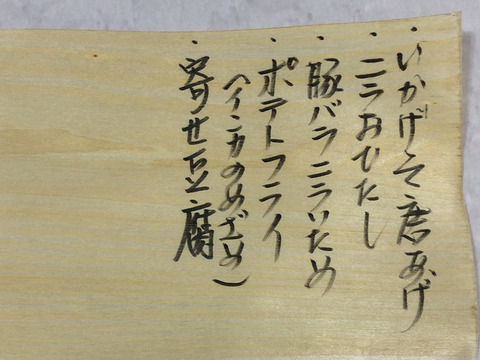 ・いかげそ唐あげ
・ニラおひたし
・豚バラニラいため
・ポテトフライ
(インカのめざめ)
・寄せ豆腐